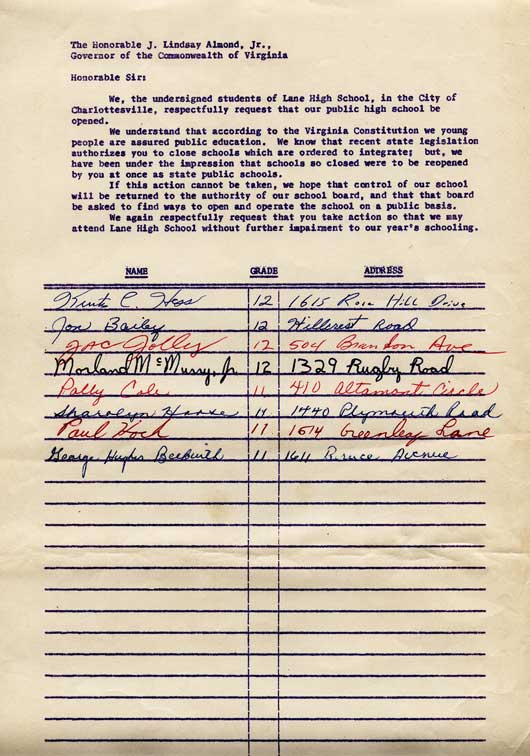 The Honorable J. Lindsay Almond, Jr.,
Governor of the Commonwealth of Virginia
Honorable Sir:
We, the undersigned students of Lane High School, in the City of
Charlottesville, respectfully request that our public high school be
opened.
We understand that according to the Virginia Constitution we young
people are assured public education. We know that recent state legislation
authorizes you to close schools which are ordered to integrate; but, we
have been under the impression that schools so closed were to be reopened
by you at once as state public schools.
If this action cannot be taken, we hope that control of our school
will be returned to the authority of our school board, and that that board
be asked to find ways to open and operate the school on a public basis.
We again respectfully request that you take action so that we may
attend Lane High School without further impairment to our year's schooling.
NAME GRADE ADDRESS
C. Hess 12 1615 Rose Hill Drive
Jon Bailey 12 Hillcrest Road
Jolley 12 504 Brandon Ave
Morland McMurry, Jr. 12 1329 Rugby Road
Polly Cole 11 410 Altamont Circle
11 1440 Plymouth Road
Paul Hoch 11 1614 Greenley Lane
George Hughes Beckwith 11 1611 Bruce Avenue